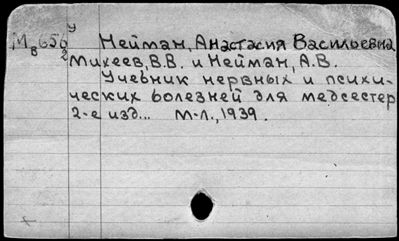 У
Мв 656/2 Нейман, Анастасия Васильевна
Михеев, В.В. и Нейман, А.В.
Учебник нервных и психи-
ческих болезней для медсестер
2-е изд... М-Л., 1939.